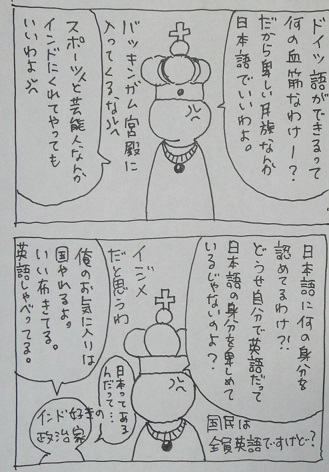 ドイツ語ができるって
何の血筋なわけー?
だから卑しい民族なんか
日本語でいいわよ。
バッキンガム宮殿に
入ってくるな
スポーツ人と芸能人なんか
インドにくれてやっても
いいわよ
日本語に何の身分を
認めてるわけ?!
どうせ自分で英語だって
日本語の身分を卑しめて
いるじゃないのよ?
国民は
全員英語ですけど?
イジメ
だと思うわ
日本ってある
んだって…
俺のお気に入りは
国やれるよ。
いい布きてる。
英語しゃべってる。
インド好きの
政治家